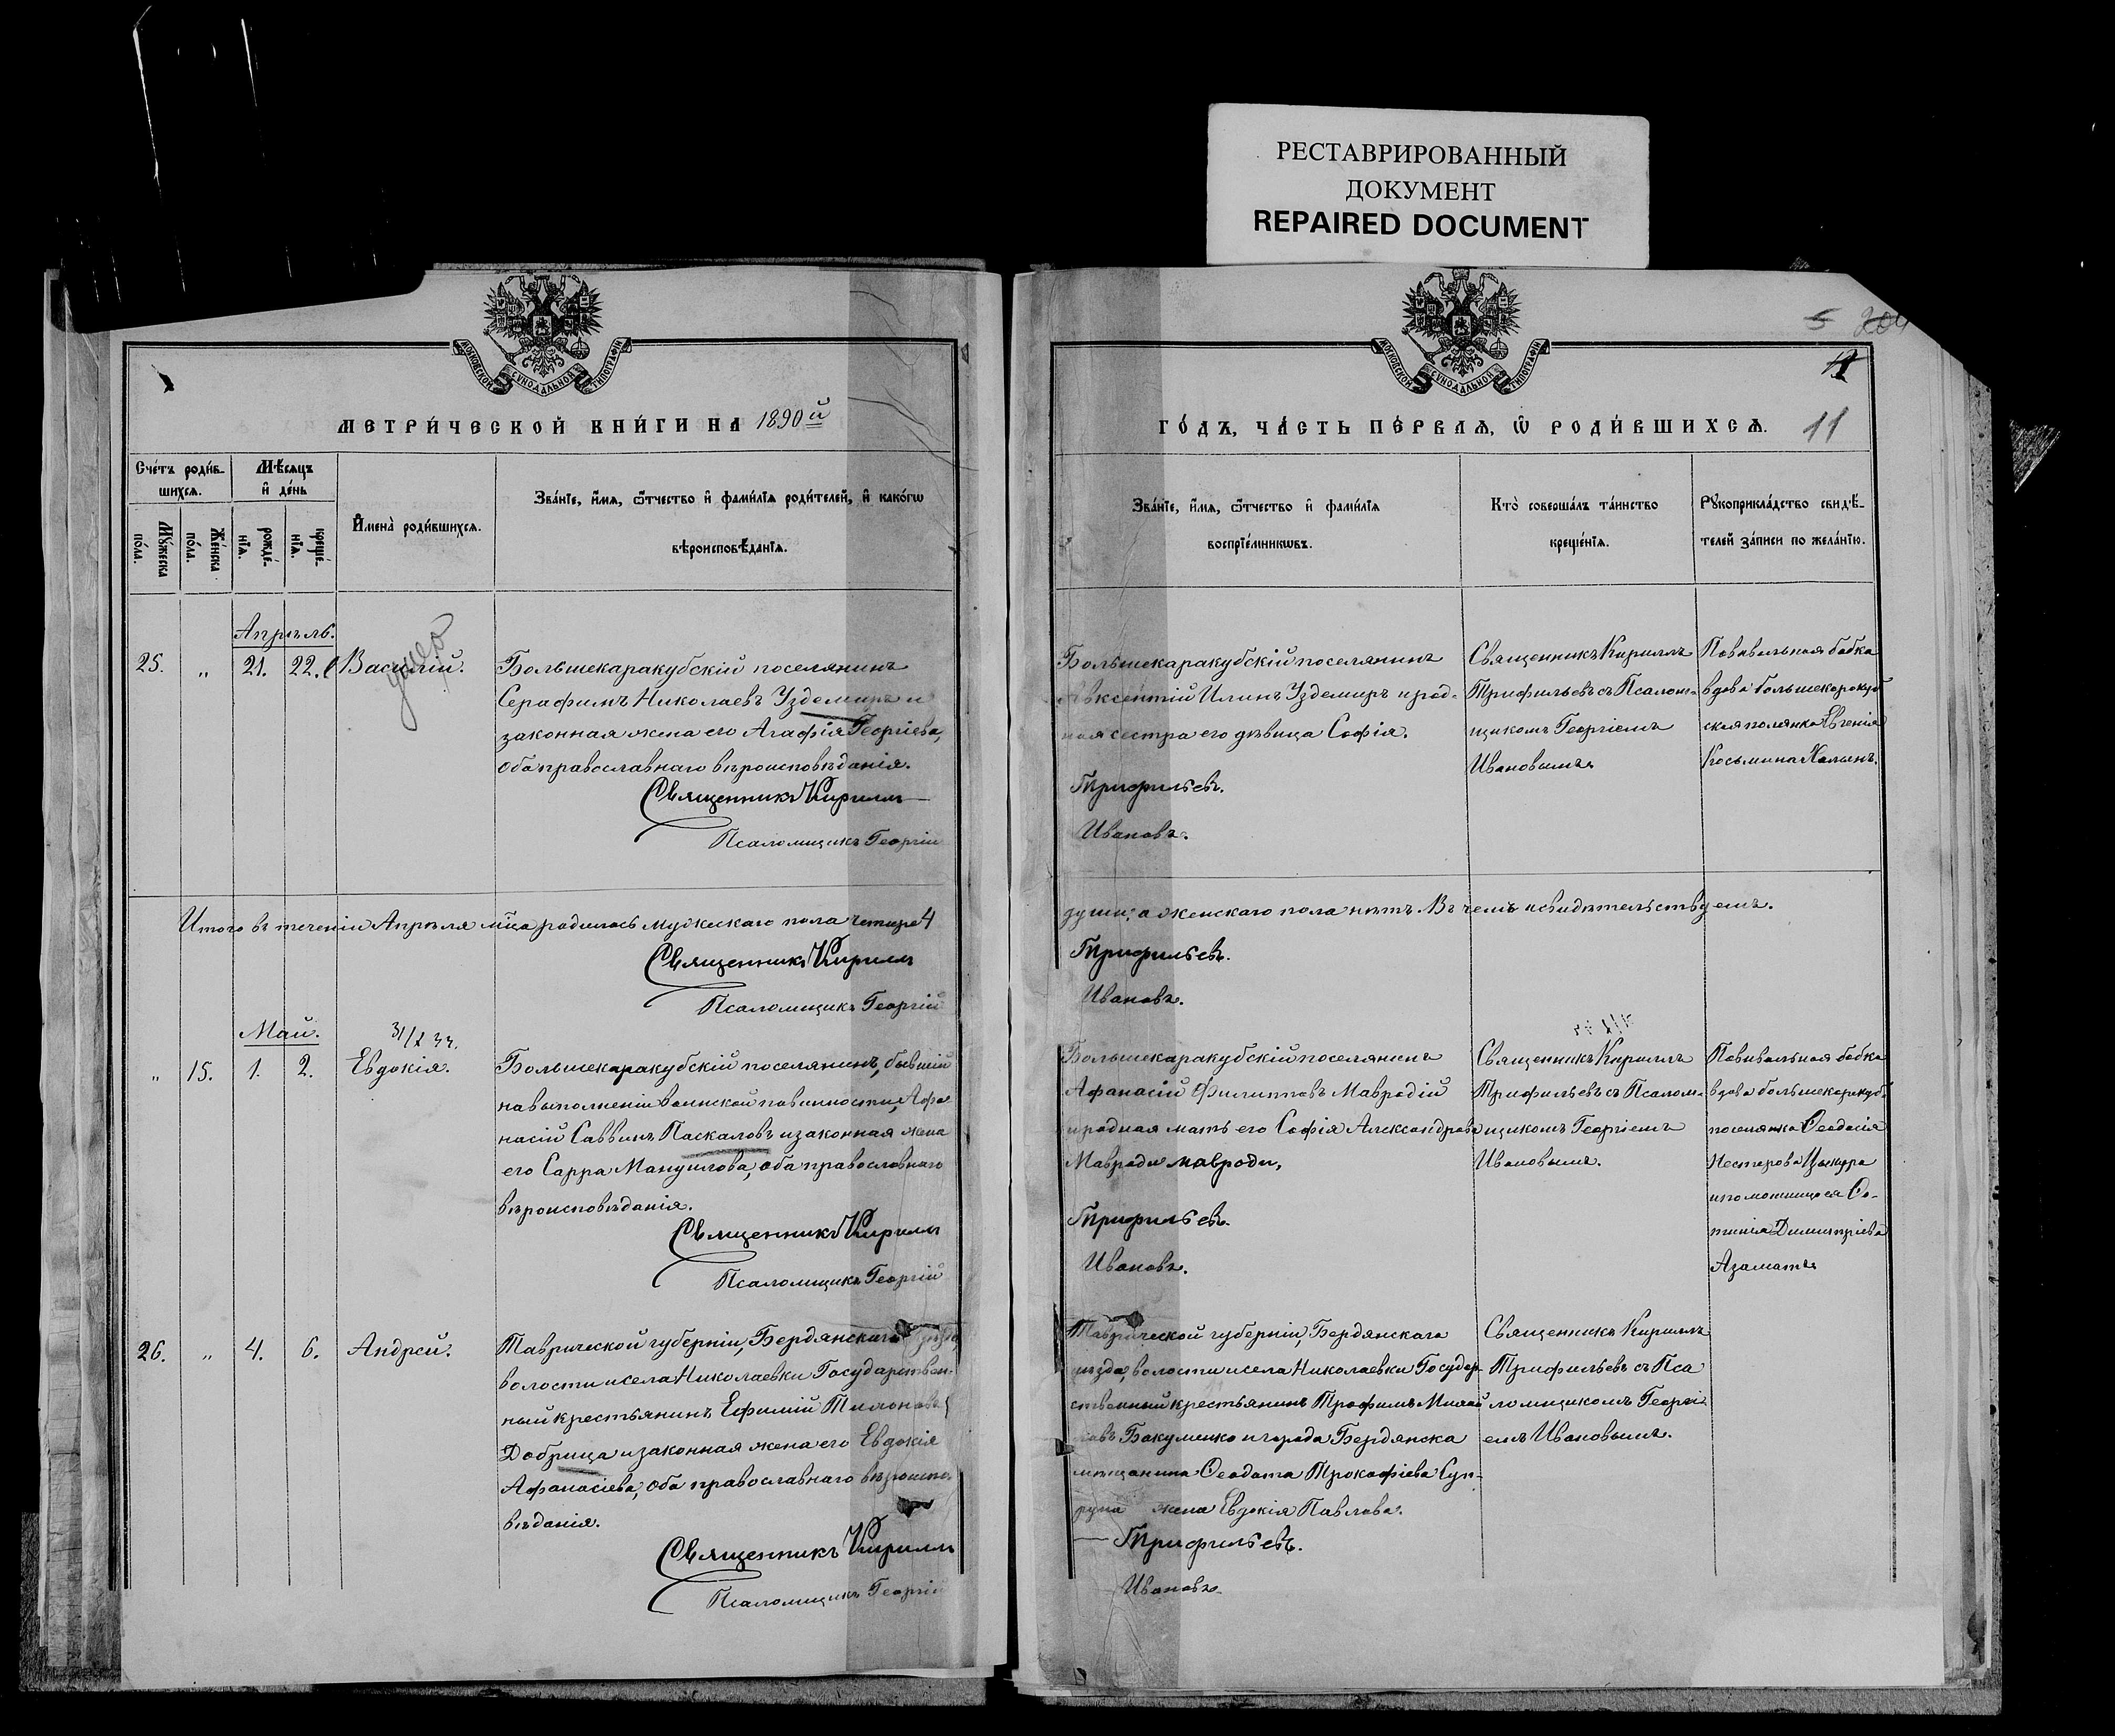 РЕСТАВРИРОВАННЫЙ
ДОКУМЕНТ
REPAIRED DOCUMENT
МОСКОВСКОЙ СѴНОДАЛЬНОЙ ТИПОГРАФІИ
МЕТРИ́ЧЕСКОЙ КНИ́ГИ НА 1890й
Сче́тъ роди́в-
шихсѧ.
Мѣ́сѧцъ
и҆ де́нь
Мꙋ́жеска
по́ла.
Же́нска
по́ла.
рожде́-
нїѧ.
креще́-
нїѧ.
И҆мена̀ роди́вшихсѧ.
Зва́нїе, и҆́мѧ, ѻ҆́тчество и҆ фами́лїѧ роди́телей, и҆ како́гѡ
вѣроисповѣ́данїѧ.
Апрѣль.
25. „ 21. 22. Василій.
умер
Большекаракубскій поселянинъ
Серафимъ Николаевъ Уздемиръ и
законная жена его Агафія Георгіева,
оба православнаго вѣроисповѣданія.
Священникъ Кириллъ
Псаломщикъ Георгій
Итого въ теченіи Апрѣля мца родилось мужескаго пола четыре 4
Священникъ Кириллъ
Псаломщикъ Георгій
Май.
„ 15. 1. 2. Евдокія.
Большекаракубскій поселянинъ, бывшій
на выполненіи воинской повинности, Афа
насій Саввинъ Паскаловъ и законная жена
его Сарра Мануилова, оба православнаго
вѣроисповѣданія.
Священникъ Кириллъ
Псаломщикъ Георгій
26. „ 4. 6. Андрей.
Таврической губерніи, Бердянскаго уѣзда,
волости и села Николаевки Государствен-
ный крестьянинъ Ефимій Тихоновъ
Добрица и законная жена его Евдокія
Афанасіева, оба православнаго вѣроиспо
вѣданія.
Священникъ Кириллъ
Псаломщикъ Георгій
5 204
11
МОСКОВСКОЙ СѴНОДАЛЬНОЙ ТИПОГРАФІИ
ГО́ДЪ, ЧА́СТЬ ПЕ́РВАѦ, Ѡ҆ РОДИ́ВШИХСѦ.
Зва́нїе, и҆́мѧ, ѻ҆́тчество и҆ фами́лїѧ
воспрїе́мникѡвъ.
Кто̀ соверша́лъ та́инство
креще́нїѧ.
Рꙋкоприкла́дство свидѣ́-
телей за́писи по жела́нїю.
Большекаракубскій поселянинъ
Авксентій Илинъ Уздемиръ и род-
ная сестра его дѣвица Софія.
Трифильевъ.
Ивановъ.
Священникъ Кириллъ
Трифильевъ съ Псалом-
щикомъ Георгіемъ
Ивановымъ.
Повивальная бабка
вдова большекаракуб
ская поселянка Евгенія
Косьмина
души; а женскаго пола нѣтъ. Въ чемъ и свидѣтельствуемъ.
Трифильевъ.
Ивановъ.
Большекаракубскій поселянинъ
Афанасій Филипповъ Мавродій
и родная мать его Софія Александрова
Мавроди мавроди,
Трифильевъ.
Ивановъ.
Священникъ Кириллъ
Трифильевъ съ Псалом-
щикомъ Георгіемъ
Ивановымъ.
Повивальная бабка
вдова большекаракуб.
поселянка Ѳеодосія
Нестерова
и помощница Фо-
тинія Димитріева
Азаматъ
Таврической губерніи, Бердянскаго
уѣзда, волости и села Николаевки Государ-
ственный крестьянинъ Трофимъ Михай
ловъ Бакуменко и города Бердянска
мѣщанина Ѳеодота Прокофіева Суп-
руна жена Евдокія Павлова.
Трифильевъ.
Ивановъ.
Священникъ Кириллъ
Трифильевъ съ Пса
ломщикомъ Георгі
емъ Ивановымъ.